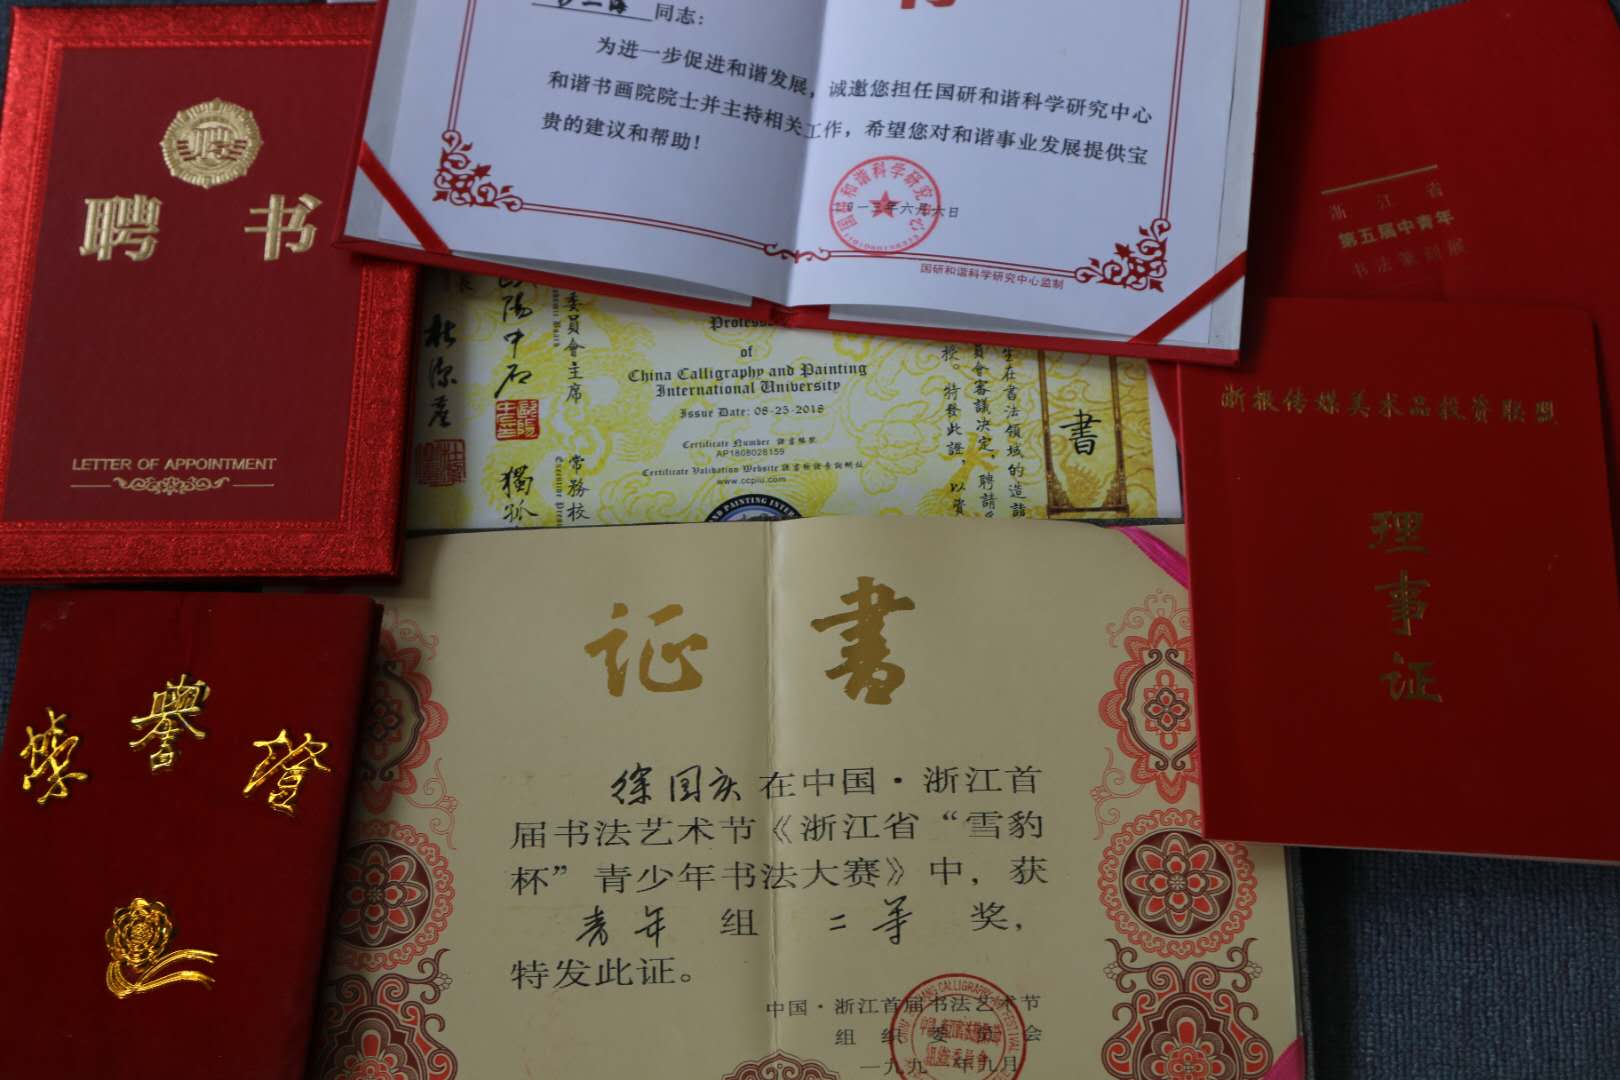 聘书
LETTER OF APPOINTMENT
同志：
为进一步促进和谐发展，诚邀您担任国研和谐科学研究中心
和谐书画院院士并主持相关工作，希望您对和谐事业发展提供宝
贵的建议和帮助！
国研和谐科学研究中心
年六月六日
国研和谐科学研究中心监制
浙江省
第五届中青年
书法篆刻展
浙报传媒美术品投资联盟
理
事
证
委員會主席
常務校
of
China Calligraphy and Painting
International University
Issue Date: 08-25-2018
Certificate Number 證書編號
AP1808028159
Certificate Validation Website 證書驗證查詢網址
www.ccpiu.com
在書法領域的造詣
員會審議決定，聘請
授。特發此證，以資
書
荣譽證
证書
徐国庆在中国·浙江首
届书法艺术节《浙江省“雪豹
杯”青少年书法大赛》中，获
青年组二等奖，
特发此证。
中国·浙江首届书法艺术节
组织委员会
一九九 年九月